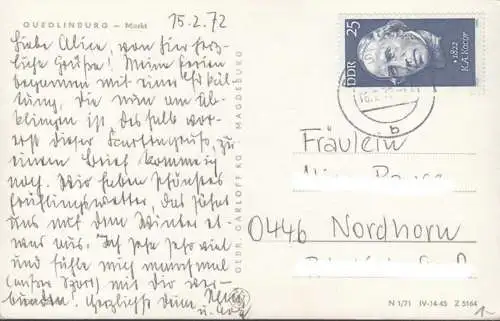 QUEDLINBURG – Markt
15.2.72
Liebe Alice, von hier fröh-
liche Grüße! Meine Ferien
begannen mit einer Erkäl-
tung, die nun am Ab-
klingen ist. Deshalb vor-
erst dieser Kartengruß, zu
einem Brief komme ich
noch. Wir haben schönstes
Frühlingswetter, das söhnt
uns mit dem Winter et-
was aus. Ich sehe sehr viel
und fühle mich manchmal
(außer Sport) mit dir ver-
bunden! Herzlichst Deine
u.
GEBR. GARLOFF KG · MAGDEBURG
25
DDR
* 1822
K.A. Kocor
b
Fräulein
0446 Nordhorn
N 1/71 IV-14-45 Z 5164
1-